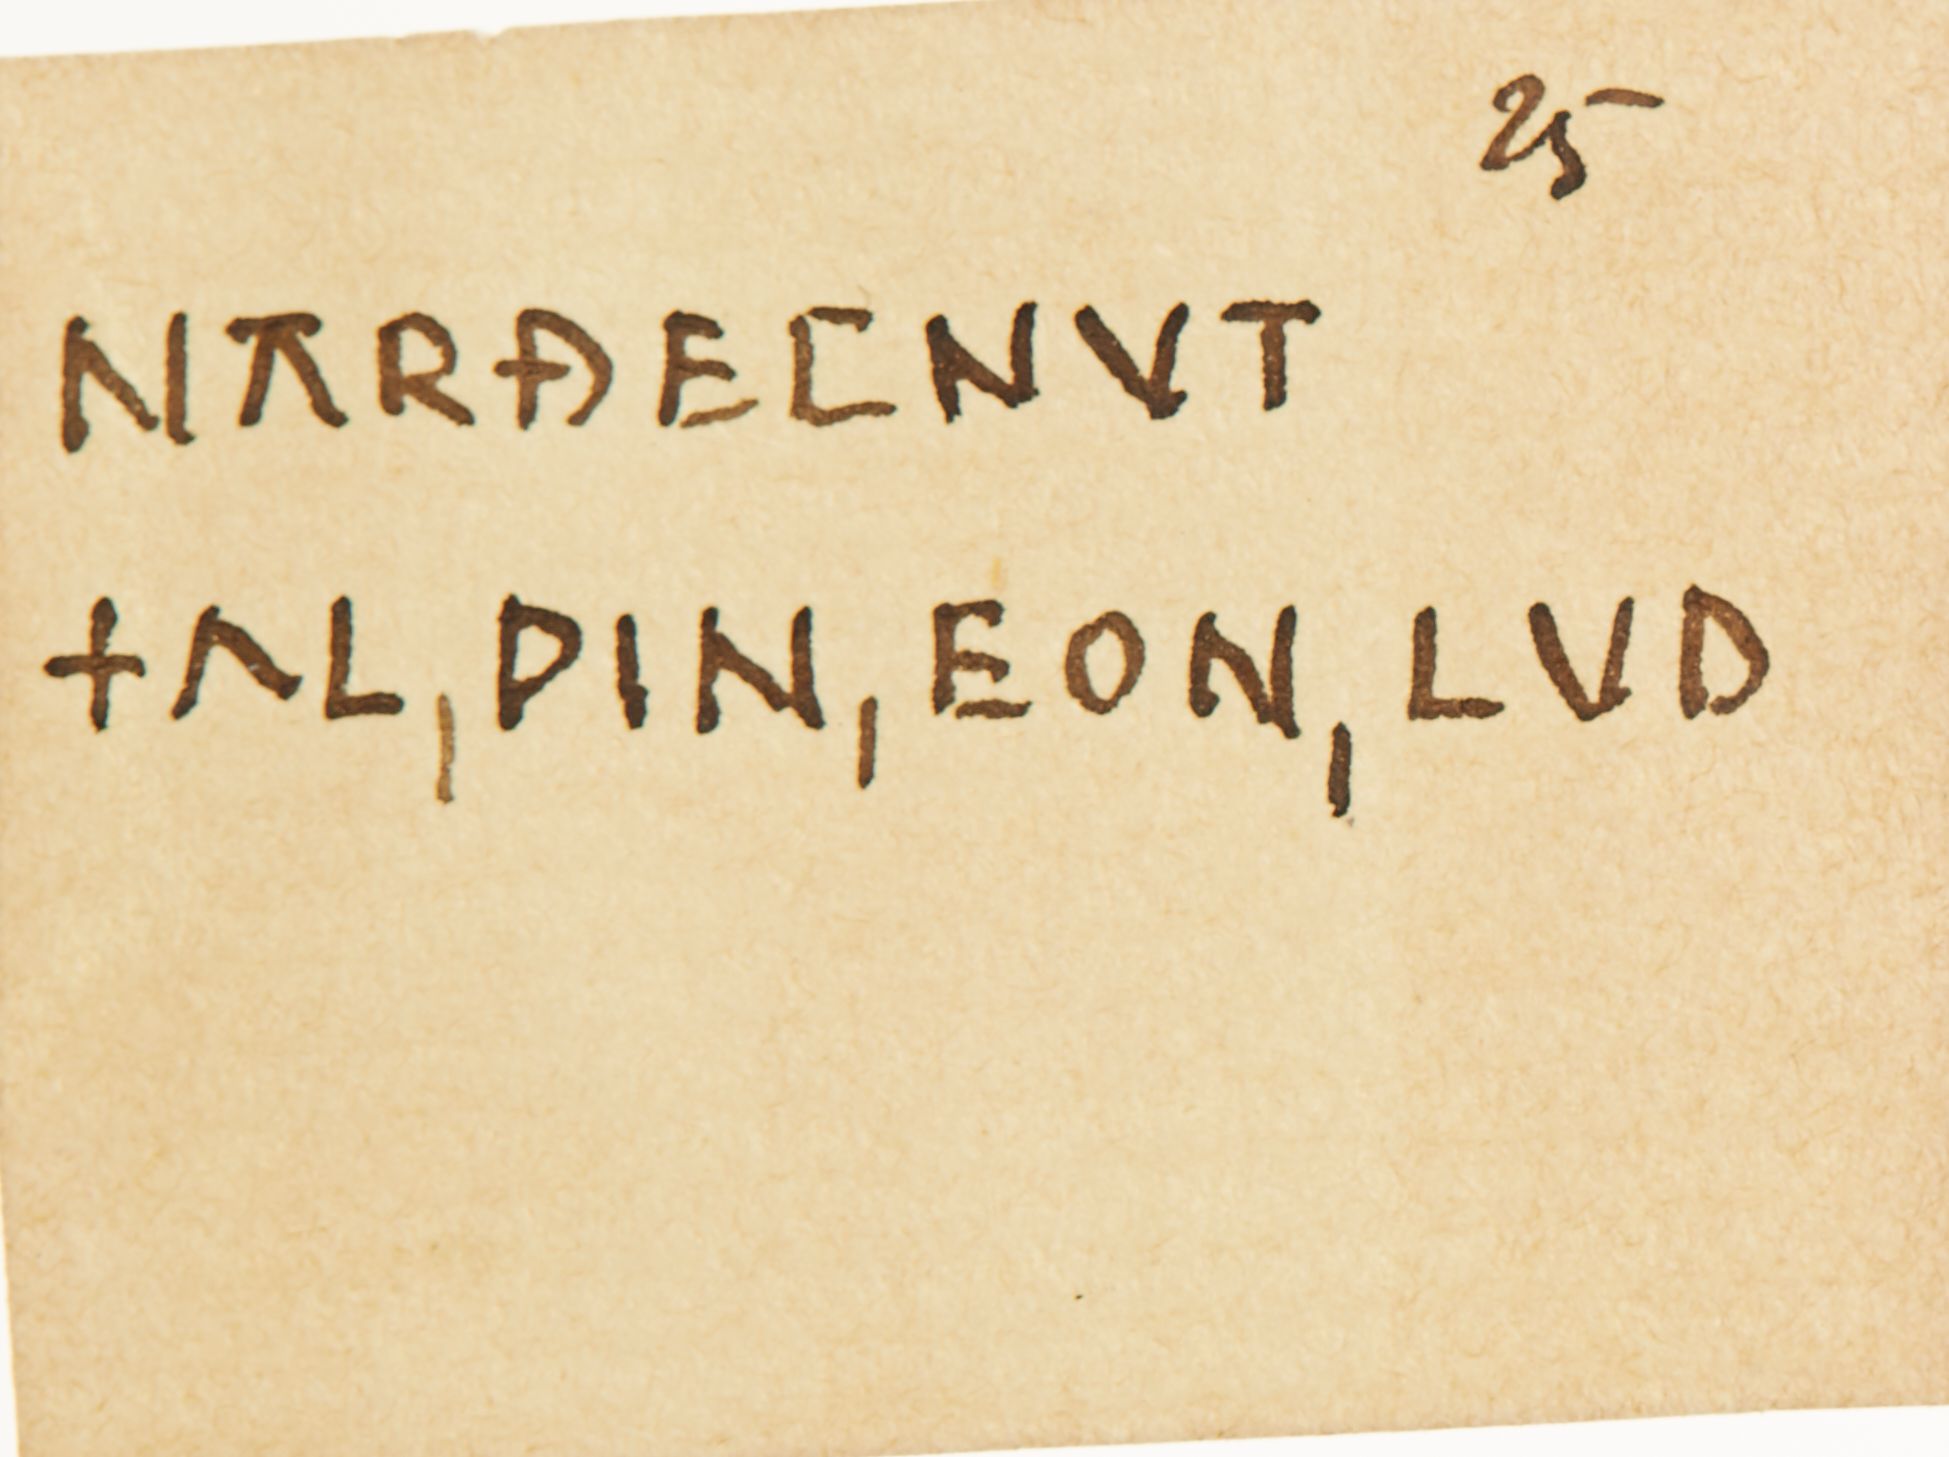 25
NARÐECNVT
+ΛL,PIN,EON,LVD